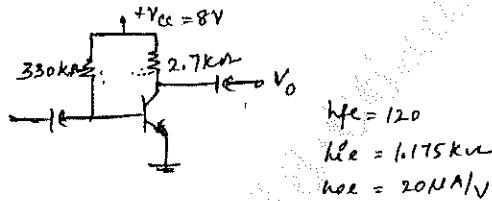 +Vcc = 8V
330kΩ
2.7kΩ
Vo
hfe = 120
hie = 1.175 kΩ
hoe = 20μA/V